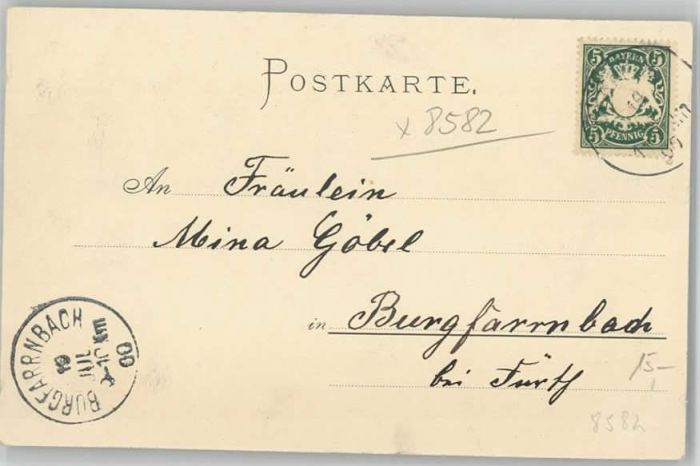 POSTKARTE.
5 BAYERN 5
5 PFENNIG 5
x 8582
An Fräulein
Mina Göbel
in Burgfarrnbach
bei Fürth
15-
8582
BURGFARRNBACH
19 JUL 00